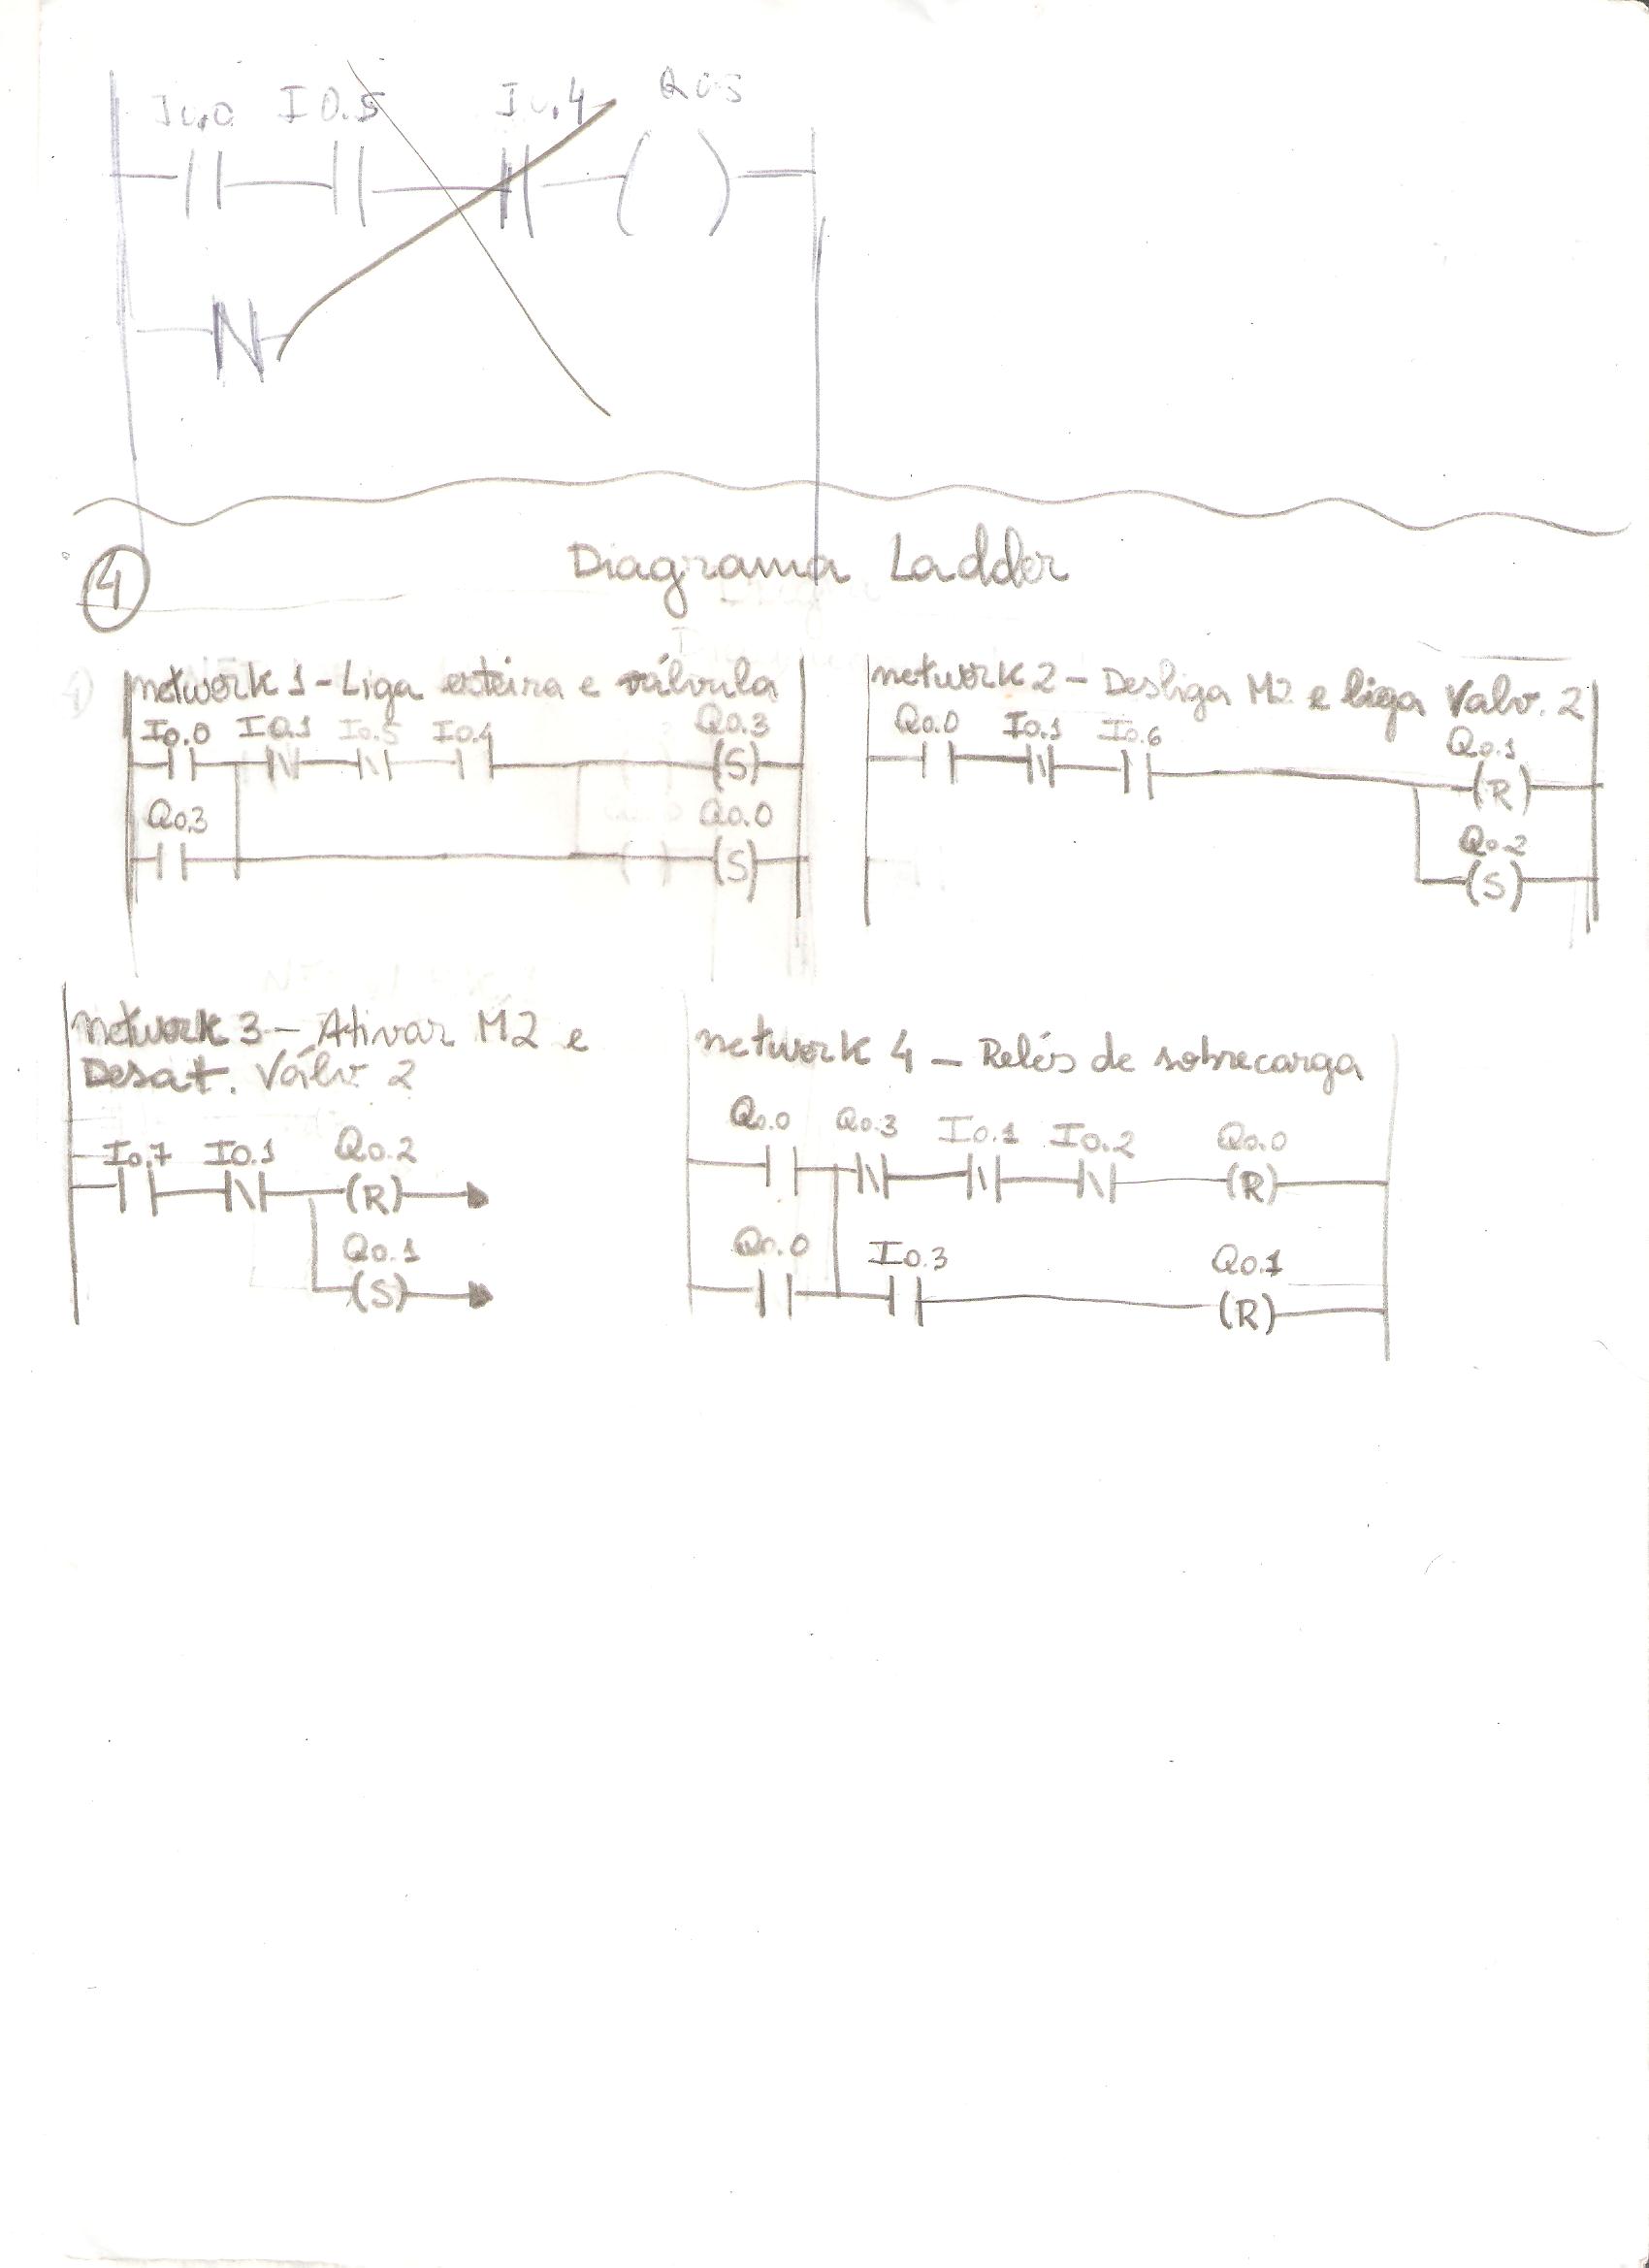 I0.0 I0.5 I0.4 Q0.3
4
Diagrama Ladder
network 1 - Liga esteira e válvula
I0.0 I0.1 I0.5 I0.4 Q0.3
(S)
Q0.3 Q0.0
(S)
network 2 - Desliga M2 e liga Valv. 2
Q0.0 I0.1 I0.6 Q0.1
(R)
Q0.2
(S)
network 3 - Ativar M2 e
Desat. Válv 2
I0.7 I0.1 Q0.2
(R)
Q0.1
(S)
network 4 - Relés de sobrecarga
Q0.0 Q0.3 I0.1 I0.2 Q0.0
(R)
Q0.0 I0.3 Q0.1
(R)